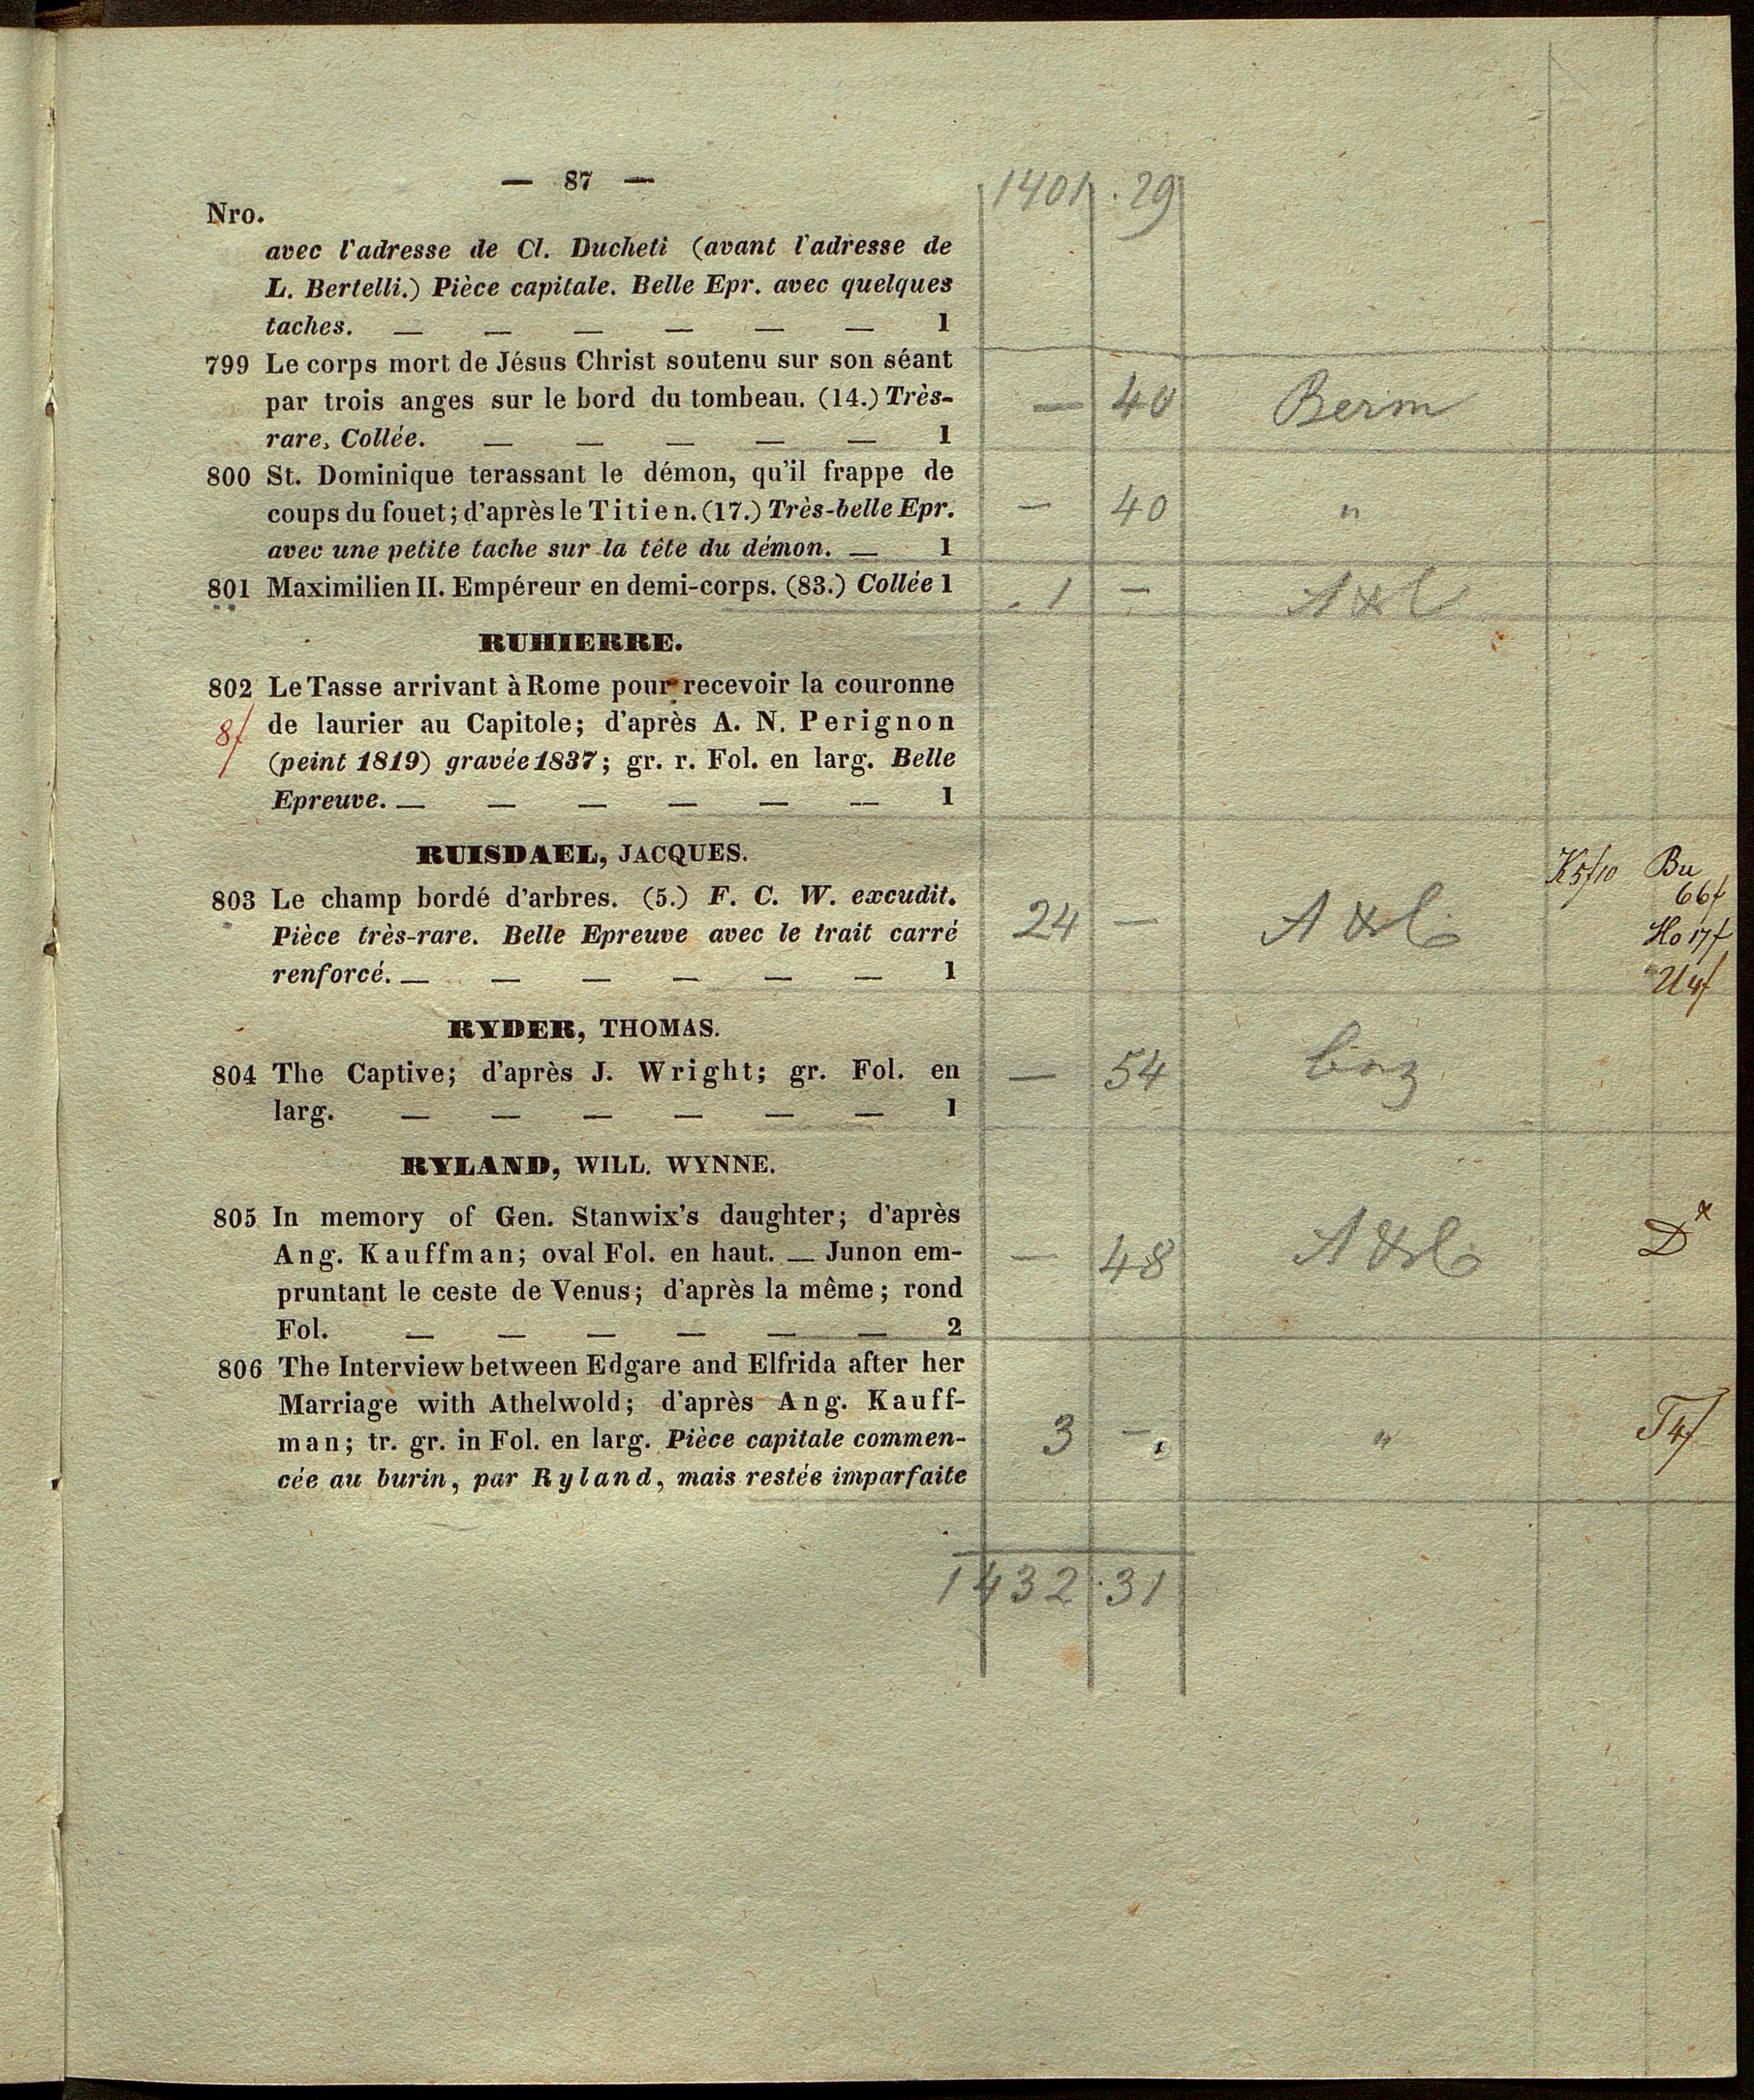 — 87 —
1401 . 29
Nro.
avec l'adresse de Cl. Ducheti (avant l'adresse de
L. Bertelli.) Pièce capitale. Belle Epr. avec quelques
taches. — — — — — — 1
799 Le corps mort de Jésus Christ soutenu sur son séant
par trois anges sur le bord du tombeau. (14.) Très-
rare, Collée. — — — — — 1
— 40 Berm
800 St. Dominique terassant le démon, qu'il frappe de
coups du fouet; d'après le Titien. (17.) Très-belle Epr.
avec une petite tache sur la tête du démon. — 1
— 40 "
801 Maximilien II. Empéreur en demi-corps. (83.) Collée 1
1 —
RUHIERRE.
802 Le Tasse arrivant à Rome pour recevoir la couronne
8f de laurier au Capitole; d'après A. N. Perignon
(peint 1819) gravée 1837; gr. r. Fol. en larg. Belle
Epreuve. — — — — — — 1
RUISDAEL, JACQUES.
803 Le champ bordé d'arbres. (5.) F. C. W. excudit.
Pièce très-rare. Belle Epreuve avec le trait carré
renforcé. — — — — — — 1
24 —
K5f10 Bu
66f
Ho 17f
U4f
RYDER, THOMAS.
804 The Captive; d'après J. Wright; gr. Fol. en
larg. — — — — — — 1
— 54
RYLAND, WILL. WYNNE.
805 In memory of Gen. Stanwix's daughter; d'après
Ang. Kauffman; oval Fol. en haut. — Junon em-
pruntant le ceste de Venus; d'après la même; rond
Fol. — — — — — — 2
— 48 D x
806 The Interview between Edgare and Elfrida after her
Marriage with Athelwold; d'après Ang. Kauff-
man; tr. gr. in Fol. en larg. Pièce capitale commen-
cée au burin, par Ryland, mais restée imparfaite
3 — " T4f
1432 . 31